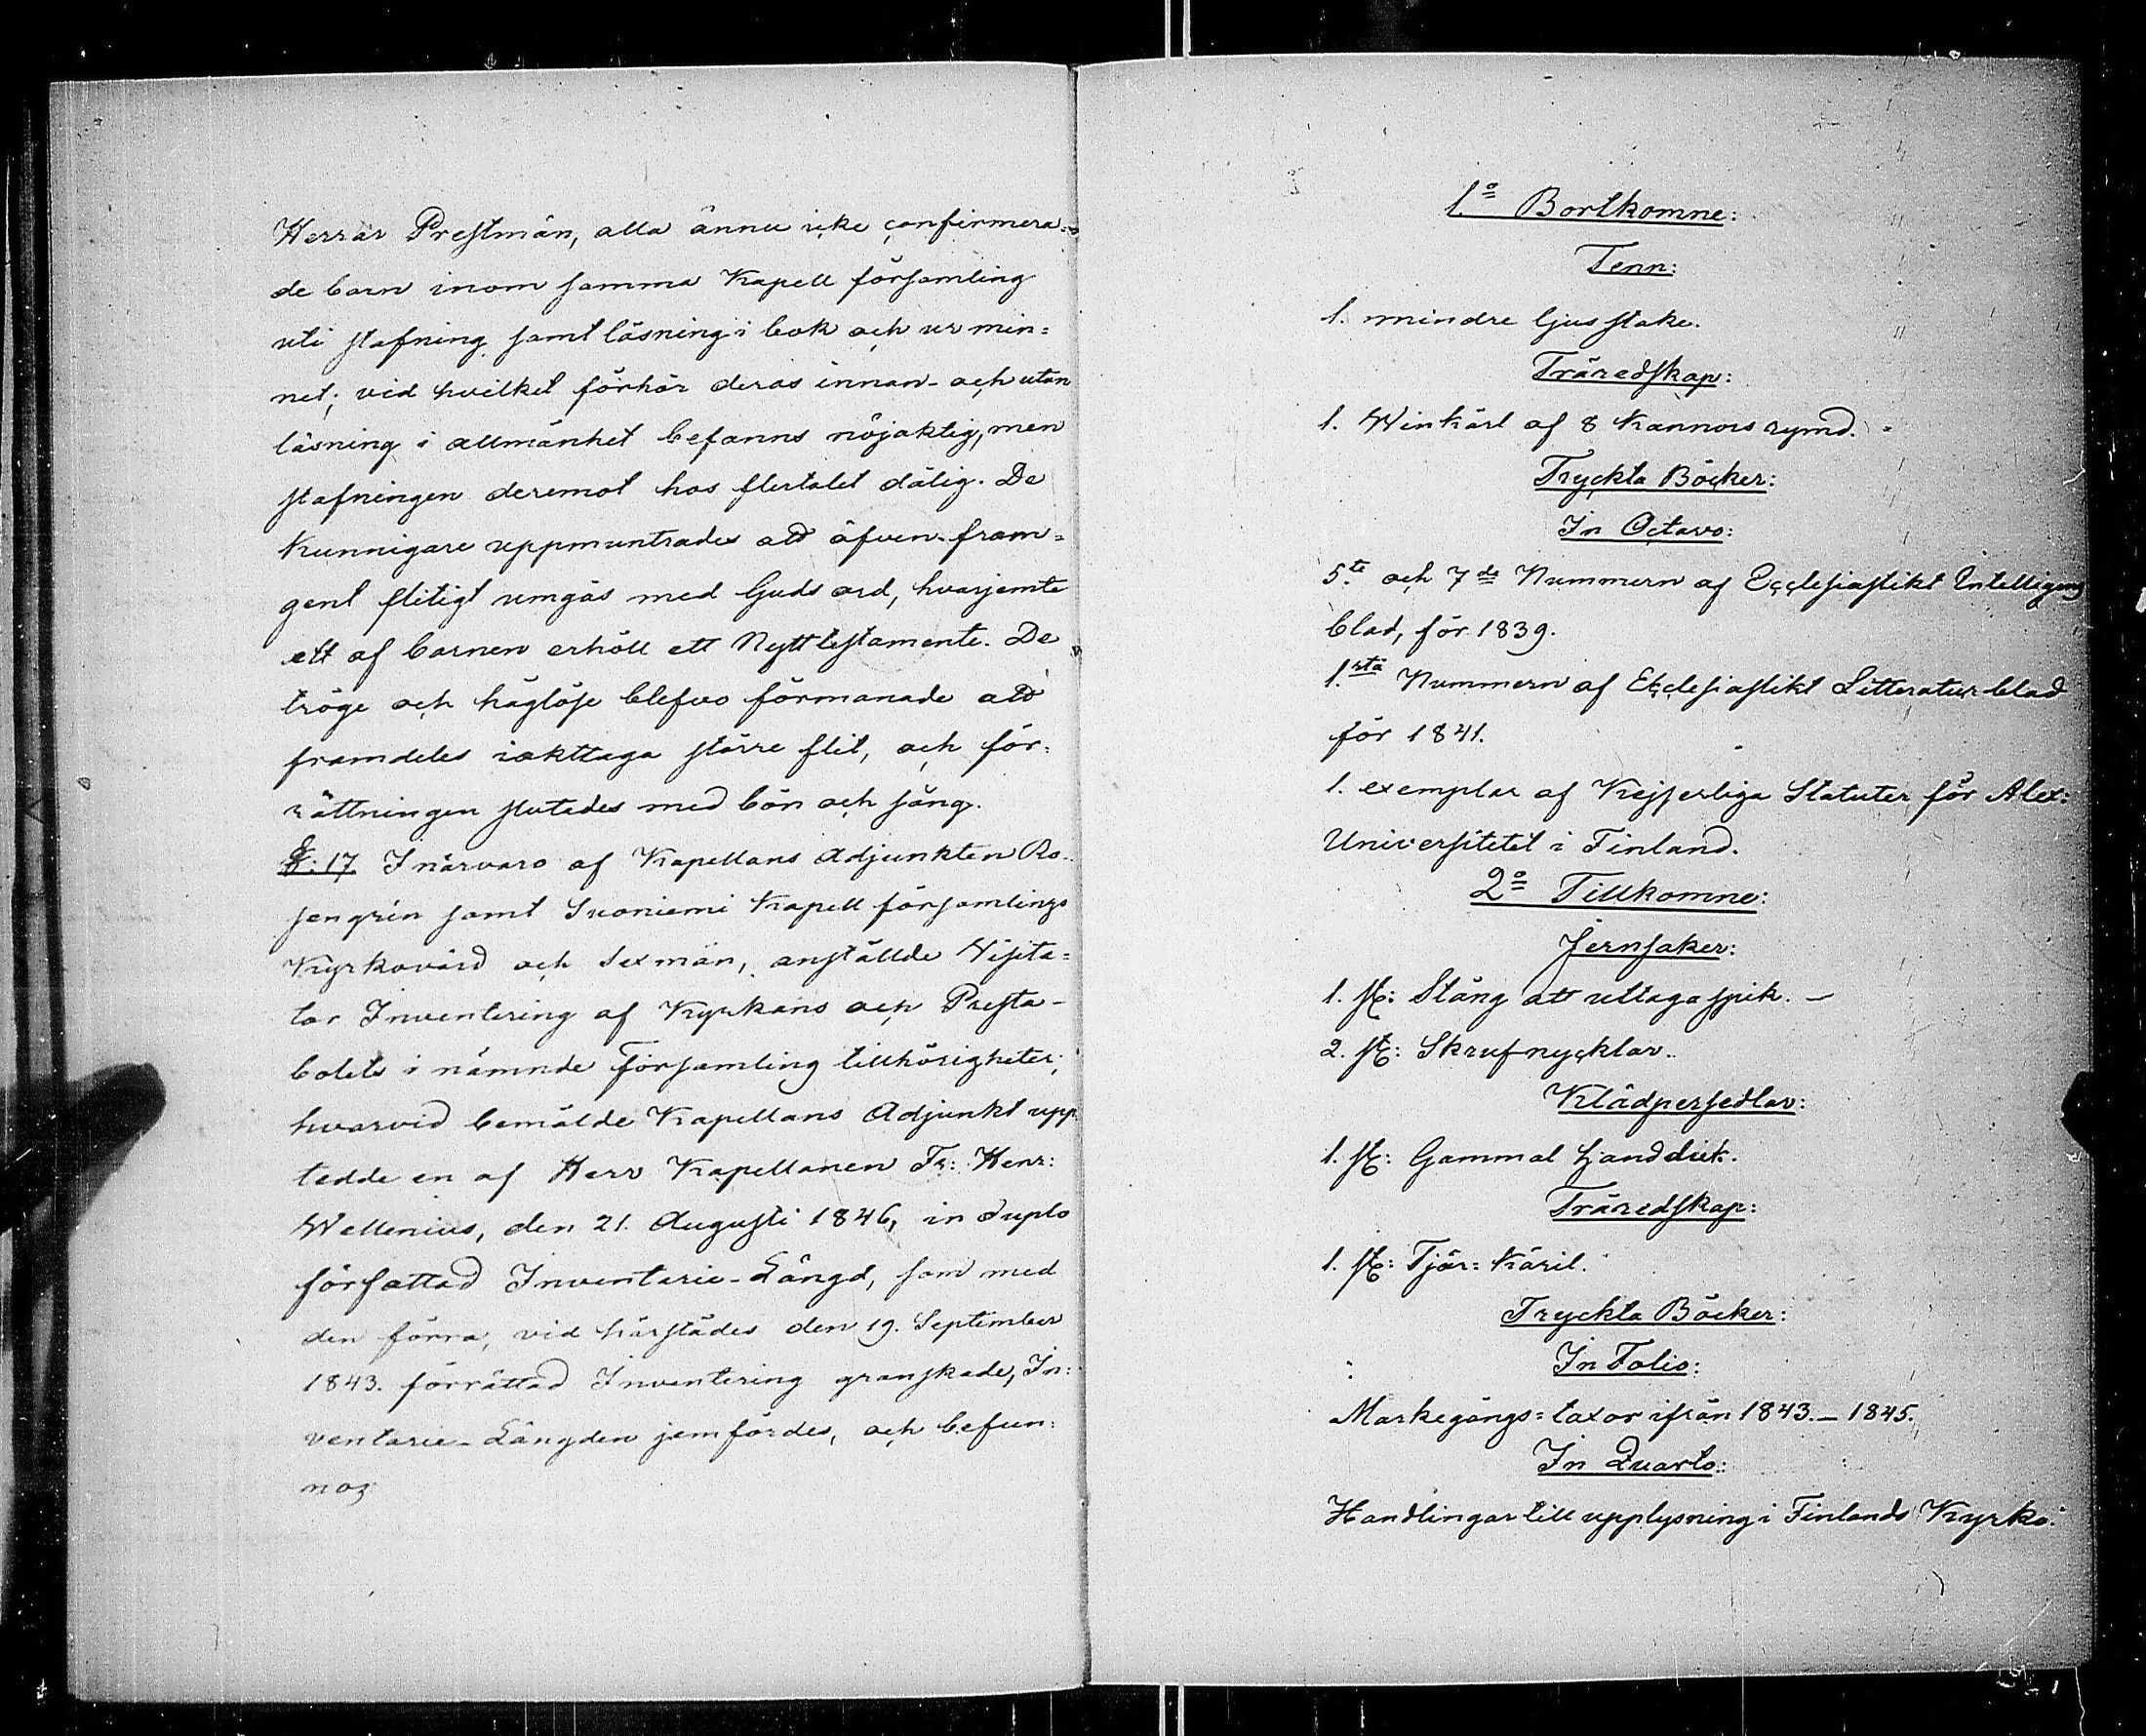 Herrar Prestmän, alla ännu icke confirmera=
de barn inom samma Kapell församling
uti stafning samt läsning i bok och ur min=
net; vid hvilket förhör deras innan- och utan
läsning i allmänhet befanns nöjaktig, men
stafningen deremot hos flertalet dålig. De
Kunnigare uppmuntrades att äfven fram=
gent flitigt umgås med Guds ord, hvarjemte
ett af barnen erhöll ett Nytt testamente. De
tröge och håglöse blefvo förmanade att
framdeles iakttaga större flit, och för=
rättningen slutades med bön och sång.
§: 17. I närvaro af Kapellans Adjunkten Ro=
sengrén samt Suoniemi Kapell församlings
Kyrkovärd och Sexmän, anställde Visita=
tor Inventering af Kyrkans och Presta-
bolets i nämnde Församling tillhörigheter;
hvarvid bemälde Kapellans Adjunkt upp=
tedde en af Herr Kapellanen Fr: Henr:
Wellenius, den 21. Augusti 1846, in duplo
författad Inventarie-Längd, som med
den förra, vid härstädes den 19. September
1843. förrättad Inventering granskade, In=
ventarie-Längden jemfördes, och befun=
nos
1:o Bortkomne:
Tenn:
1. mindre ljusstake.
Träredskap:
1. Winkärl af 8 Kannors rymd.
Tryckta Böcker:
In Octavo:
5.te och 7de Nummern af Ecclesiastikt Intelligens
blad, för 1839.
1.sta Nummern af Ecclesiastikt Litteratur blad
för 1841.
1. exemplar af Kejserliga Statuter för Alex:
Universitetet i Finland.
2o Tillkomne:
Jernsaker:
1. st: Stång att uttaga spik. -
2. st: Skrufnycklar.
Klädpersedlar:
1. st: Gammal handduk.
Träredskap:
1. st: Tjär=Käril.
Tryckta Böcker:
In Folio:
Markegångs=taxor ifrån 1843.-1845.
In Quarto:
Handlingar till upplysning i Finlands Kyrko=